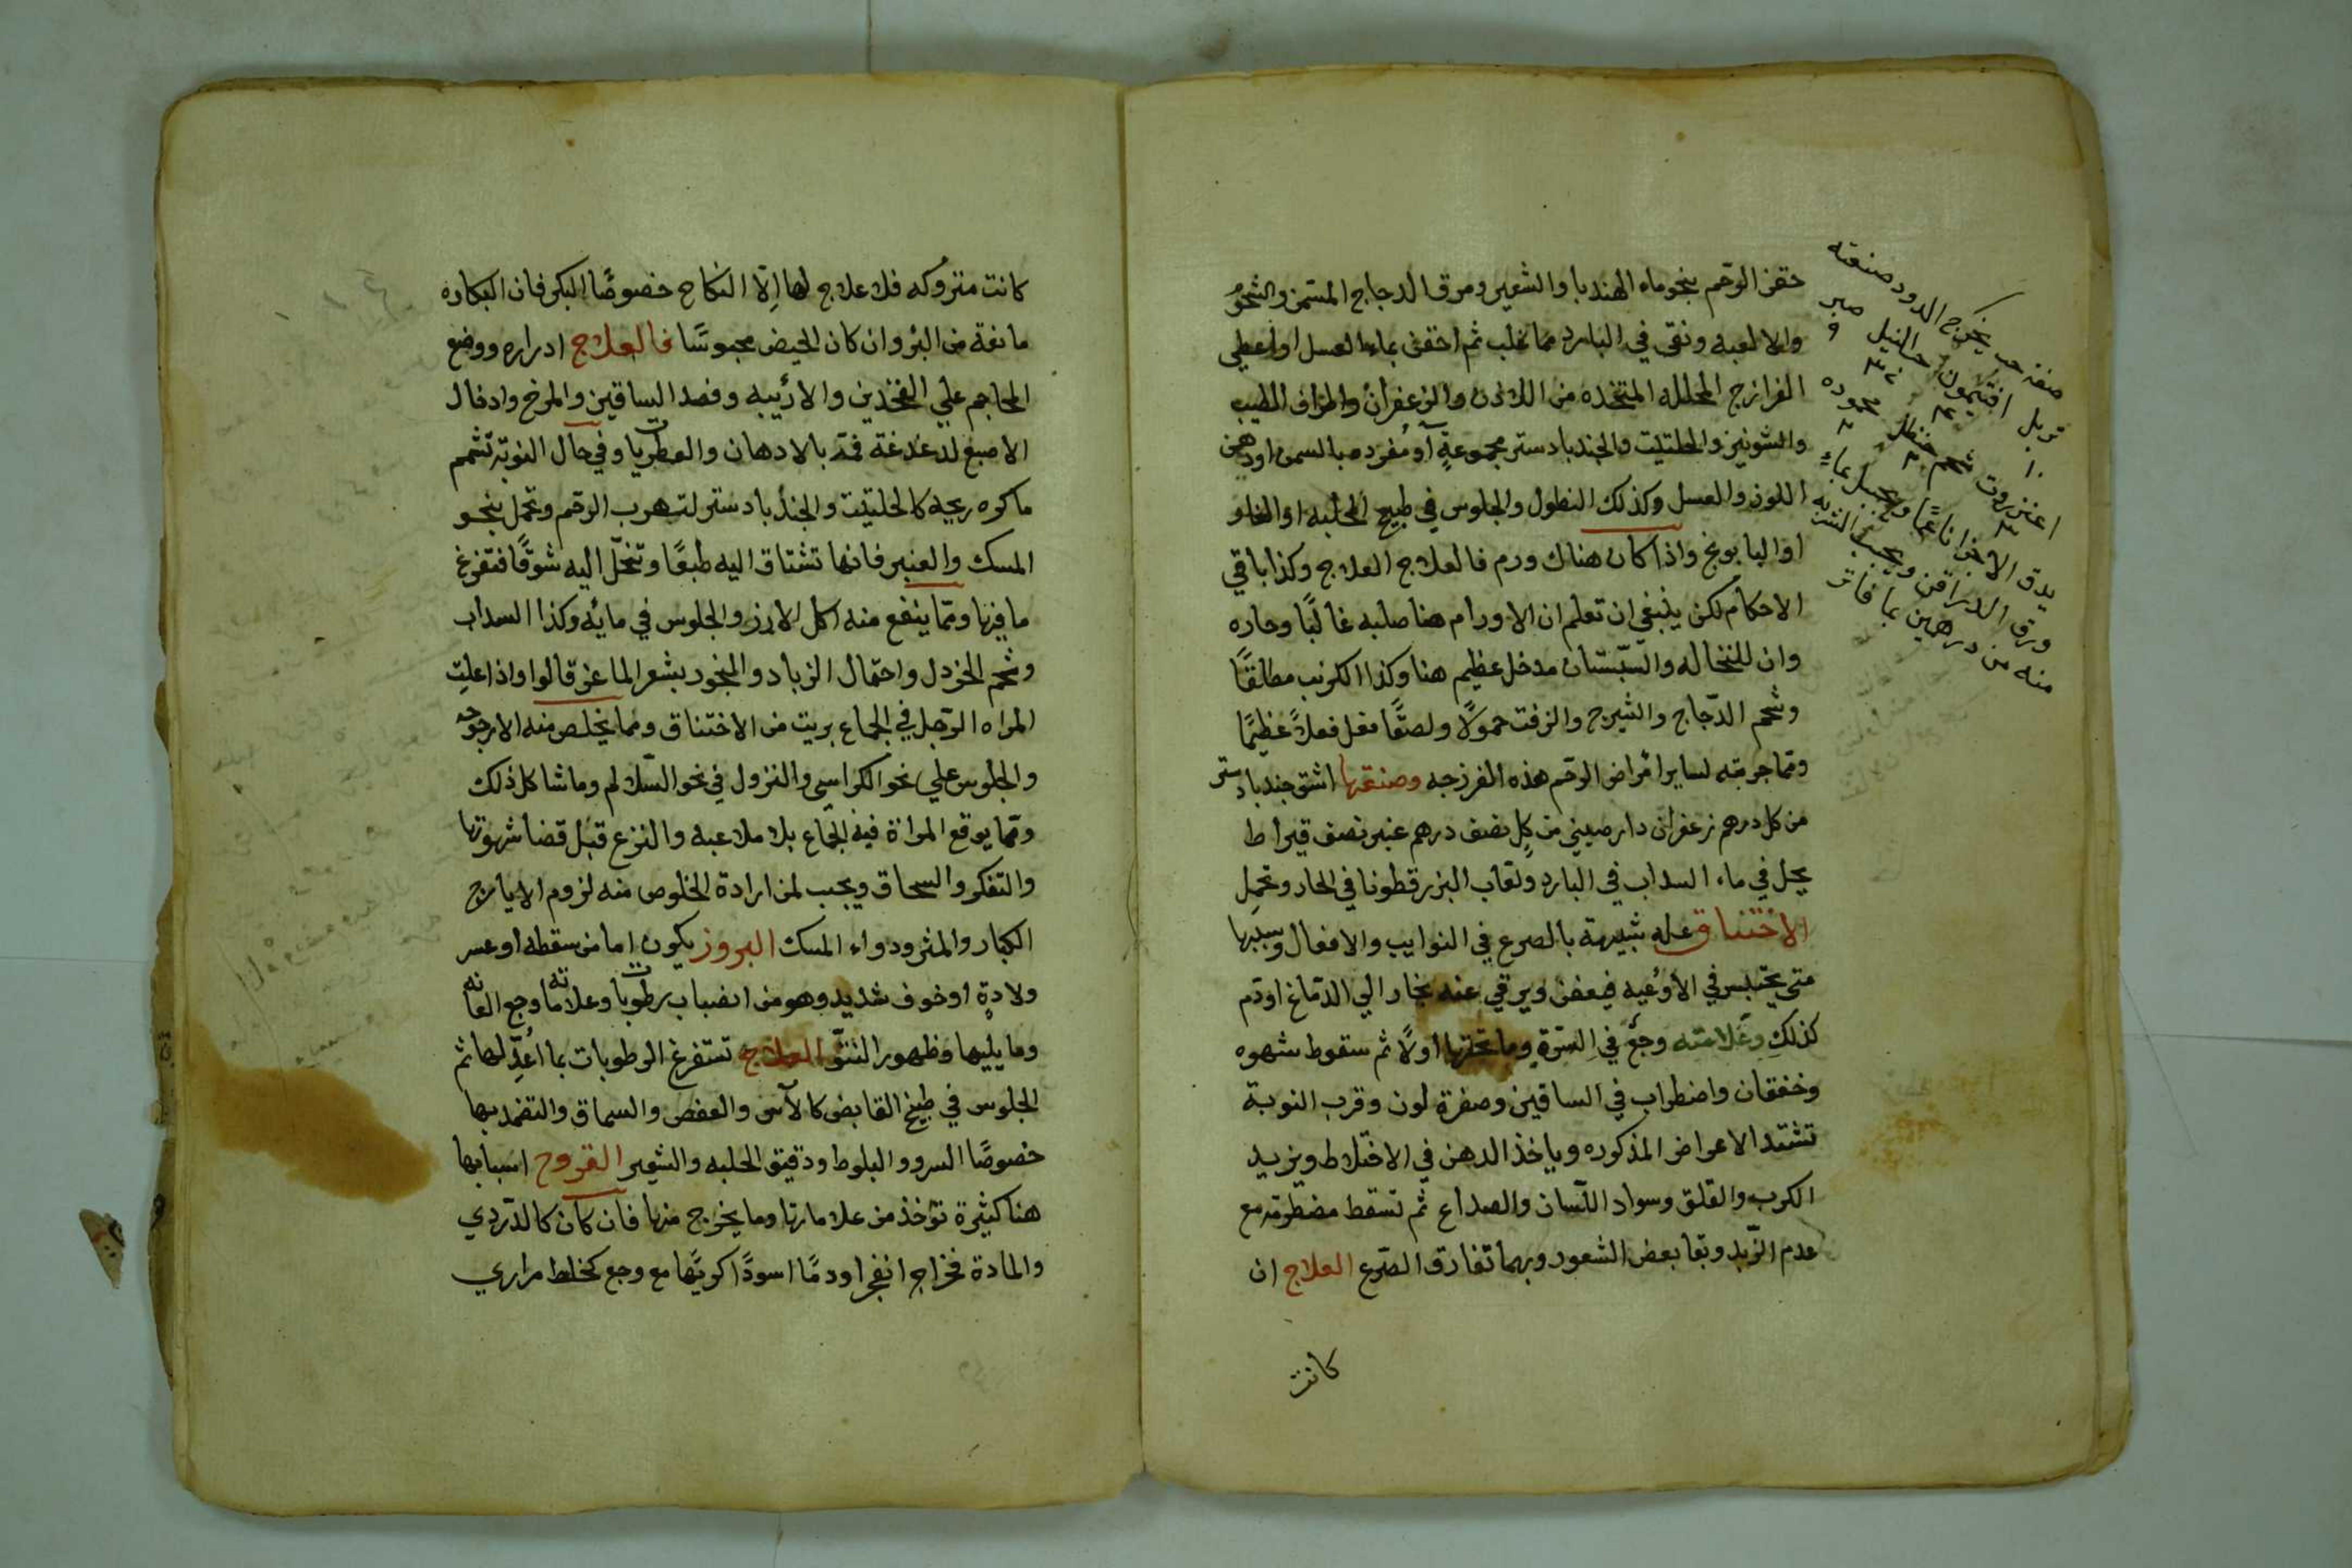 حقن الرحم بنحو ماء الهندبا والشعير ومرق الدجاج المسمن والشحوم
والالعبه ونقي في البارد مما غلب ثم احقن بماء العسل او اعطي
الفرازج المحلله المتخذه من اللادن والزعفران والطيب
والشونيز والحلتيت والجندبادستر مجموعةً او مفرده بالسمن او دهن
اللوز والعسل وكذلك النطول والجلوس في طبيخ الحلبه او
او البابونج واذا كان هناك ورم فالعلاج العلاج وكذا باقي
الاحكام لكن ينبغي ان تعلم ان الاورام هنا صلبه غالبًا وحاره
وان للنخاله والسبستان مدخل عظيم هنا وكذا الكرنب مطلقًا
وشحم الدجاج والشيرج والزفت حمولًا ولصقًا فعل فعلاً عظيمًا
ومما جربته لساير امراض الرحم هذه الفرزجه وصنعتها اشق جندبادستر
من كل درهم زعفران دارصيني من كل نصف درهم عنبر نصف قيراط
يحل في ماء السداب في البارد ولعاب البزرقطونا في الحار وتحمل
الاختناق عله شبيهة بالصرع في النوايب والافعال وسببها
متى يحتبس في الاوعيه فيعفن ويرقي عنه بخار الي الدماغ او دم
كذلك وعلامته وجع في السرة وما تحتها اولًا ثم سقوط شهوه
وخفقان واضطراب في الساقين وصفرة لون وقرب النوبة
تشتد الاعراض المذكوره وياخذ الدهن في الاختلاط ويزيد
الكرب والقلق وسواد اللسان والصداع ثم تسقط مضطربه مع
عدم الزبد وبقا بعض الشعور وبهما تفارق الصرع العلاج ان
كانت
صفة حب يخرج الدود صنعته
تربل افتيمون حب النيل صبر
١٠
عنزروت شحم حنظل محموده
يدق الاجزا ناعمًا وتجبل بماء
ورق الدراقن ويحبب الشربه
منه من درهمين بما فاتر
كانت متروكه فلا علاج لها إلّا النكاح خصوصًا البكر فان البكاره
مانعة من البرو وان كان الحيض محبوسًا فالعلاج ادراره ووضع
المحاجم علي الفخذين والاربيه وفصد الساقين والمرخ وادخال
الاصبع لدغدغة فمه بالادهان والعطريات وفي حال النوبة تشمم
ماكره ريحه كالحلتيت والجندبادستر لتهرب الرحم وتحمل بنحو
المسك والعنبر فانها تشتاق اليه طبعًا وتنحل اليه شوقًا فتفرغ
ما فيها ومما ينفع منه اكل الارز والجلوس في مائه وكذا السداب
وشحم الخردل واحتمال الزباد والبخور بشعر الماعز قالوا واذا علت
المراه الرجل في الجماع بريت من الاختناق ومما يخلص منه الارجوحه
والجلوس علي نحو الكراسي والنزول في نحو السلالم وما شاكل ذلك
ومما يوقع المراة فيه الجماع بلا ملاعبه والنزع قبل قضا شهوتها
والتفكر والسحاق ويجب لمن ارادة الخلوص منه لزوم الايارج
الكبار والمثرودواء المسك البروز يكون اما من سقطه او عسر
ولادةٍ او خوف شديد وهو من انصباب رطوبات وعلاماته وجع العانه
وما يليها وظهور النتوّ العلاج تستفرغ الرطوبات بما اُعدّ لها ثم
الجلوس في طبيخ القابض كالآس والعفص والسماق والتضمد بها
خصوصًا السرو والبلوط ودقيق الحلبه والشعير القروح اسبابها
هنا كثيرة تؤخذ من علاماتها وما يخرج منها فان كان كالدردي
والمادة فخراج انفجر او دمًا اسودًا كريهًا مع وجع كخلط مراري